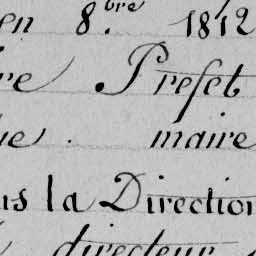 en 8.bre 1812
re Prefet
ue. maire
us la Direction
directeur